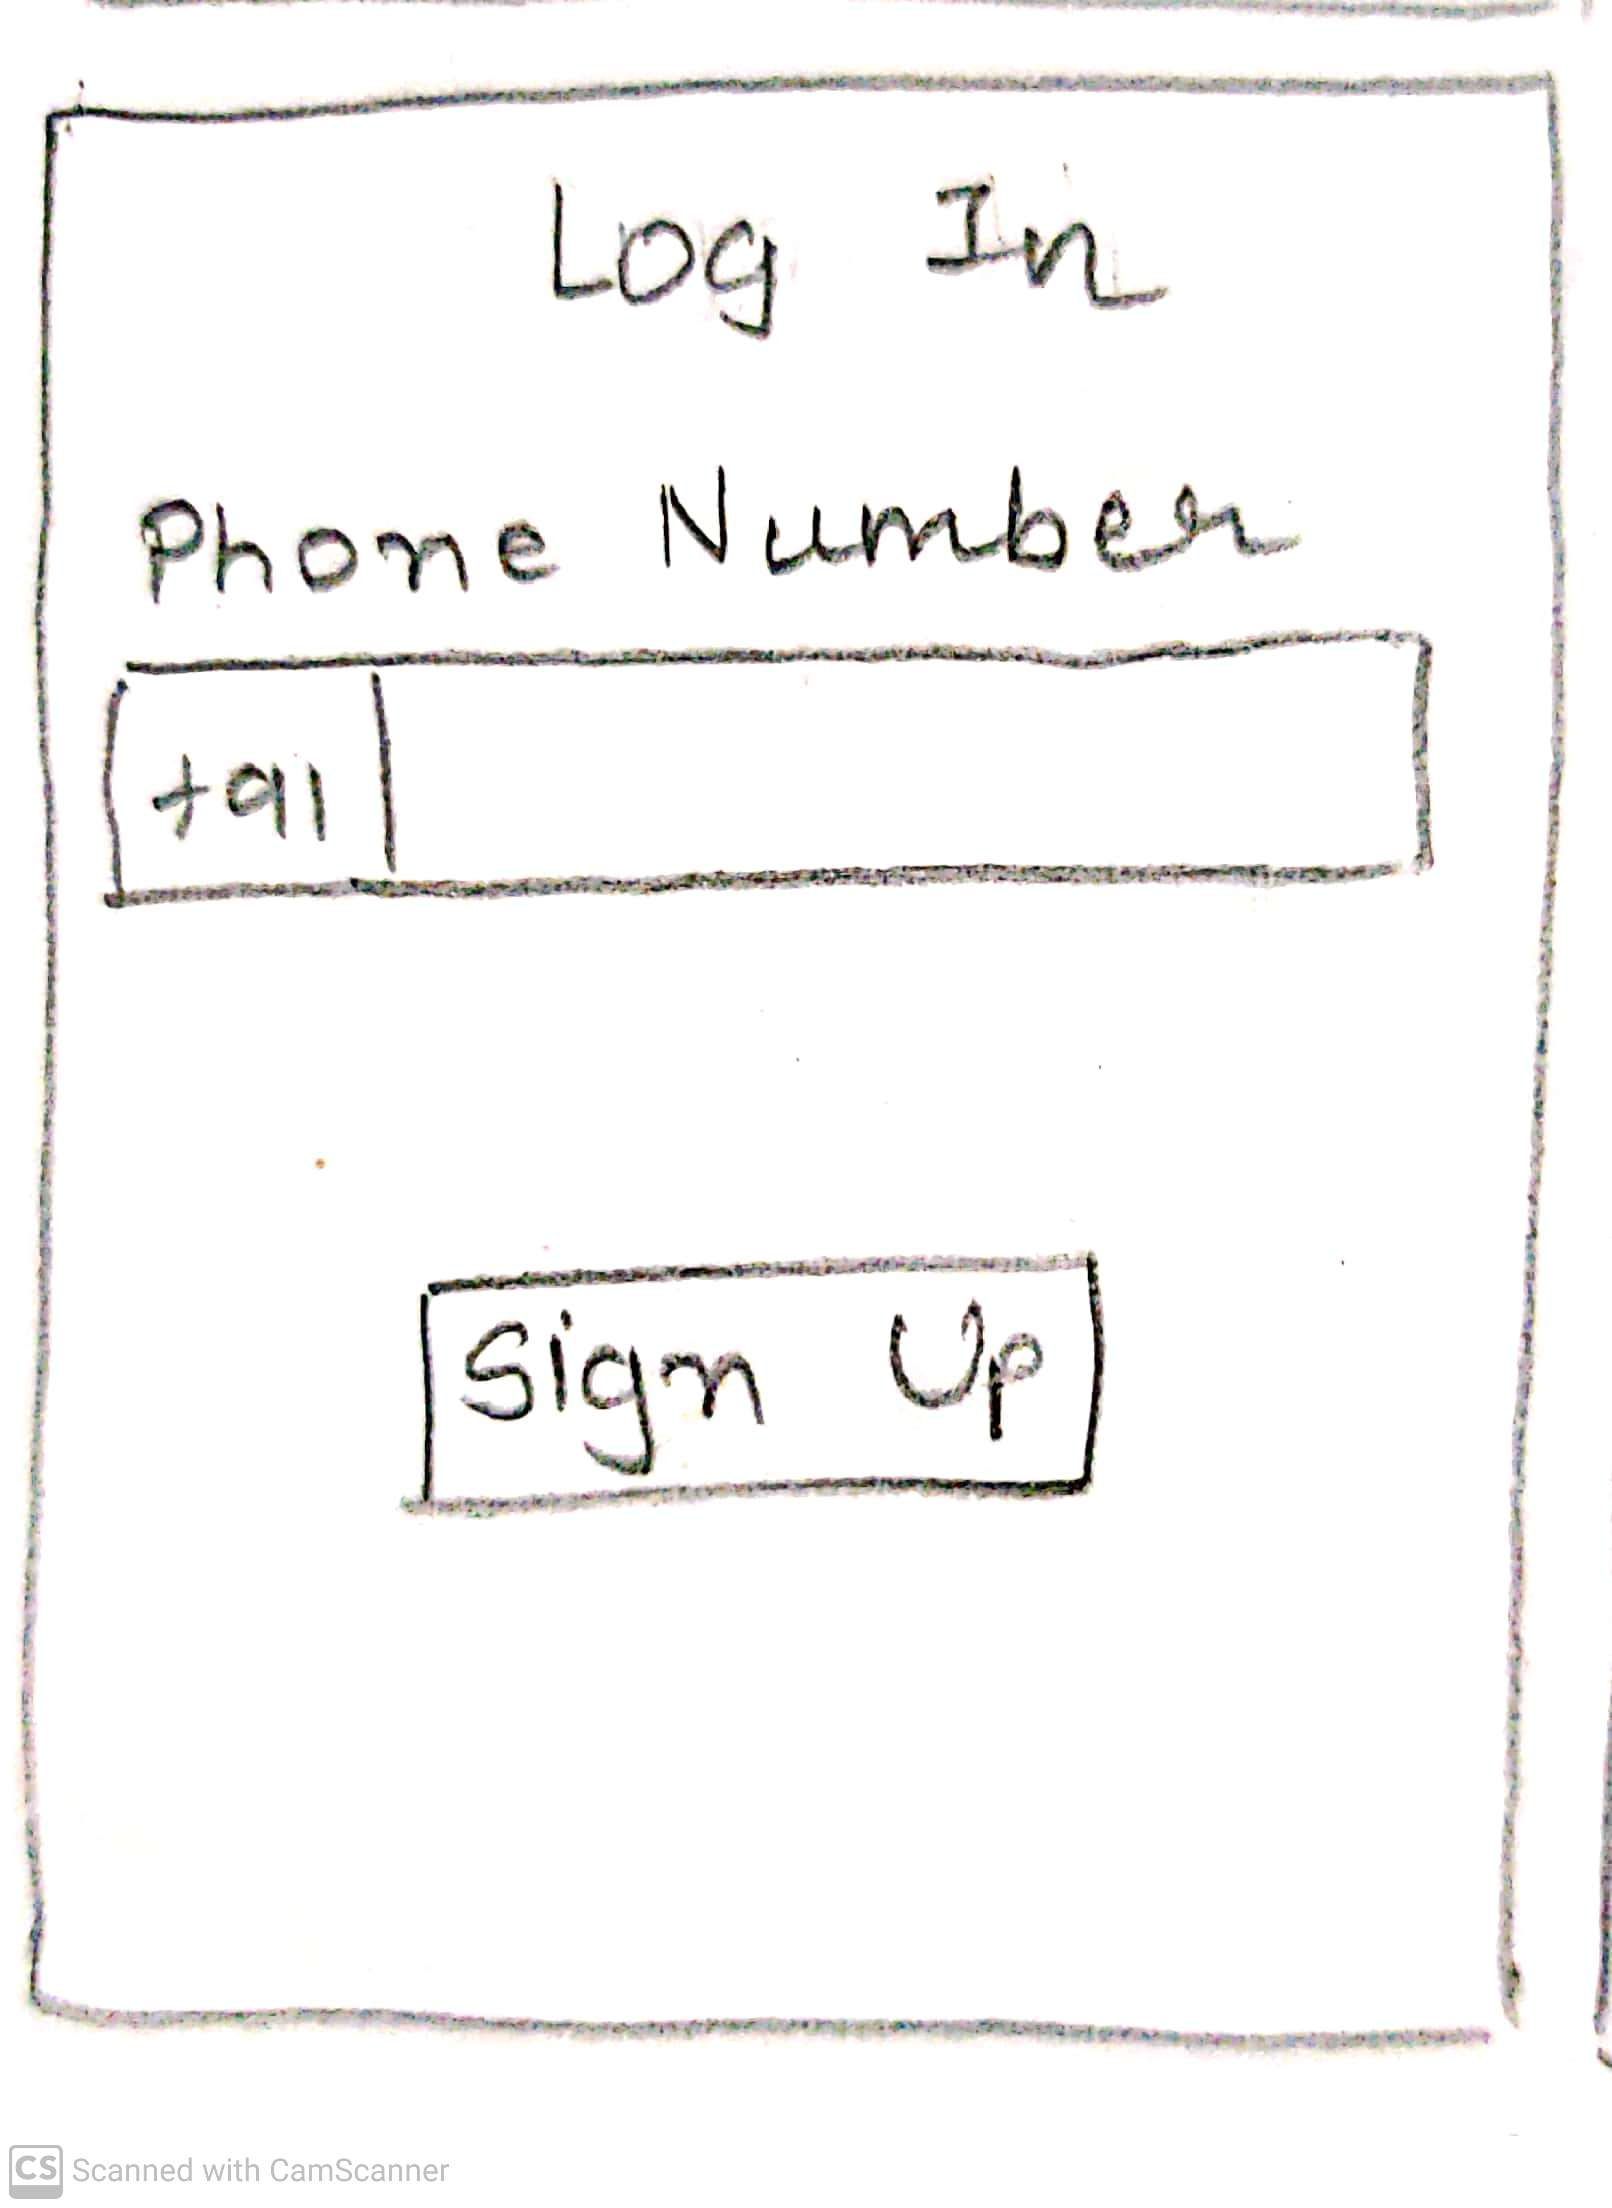 Log In
Phone Number
+91
Sign Up
CS Scanned with CamScanner